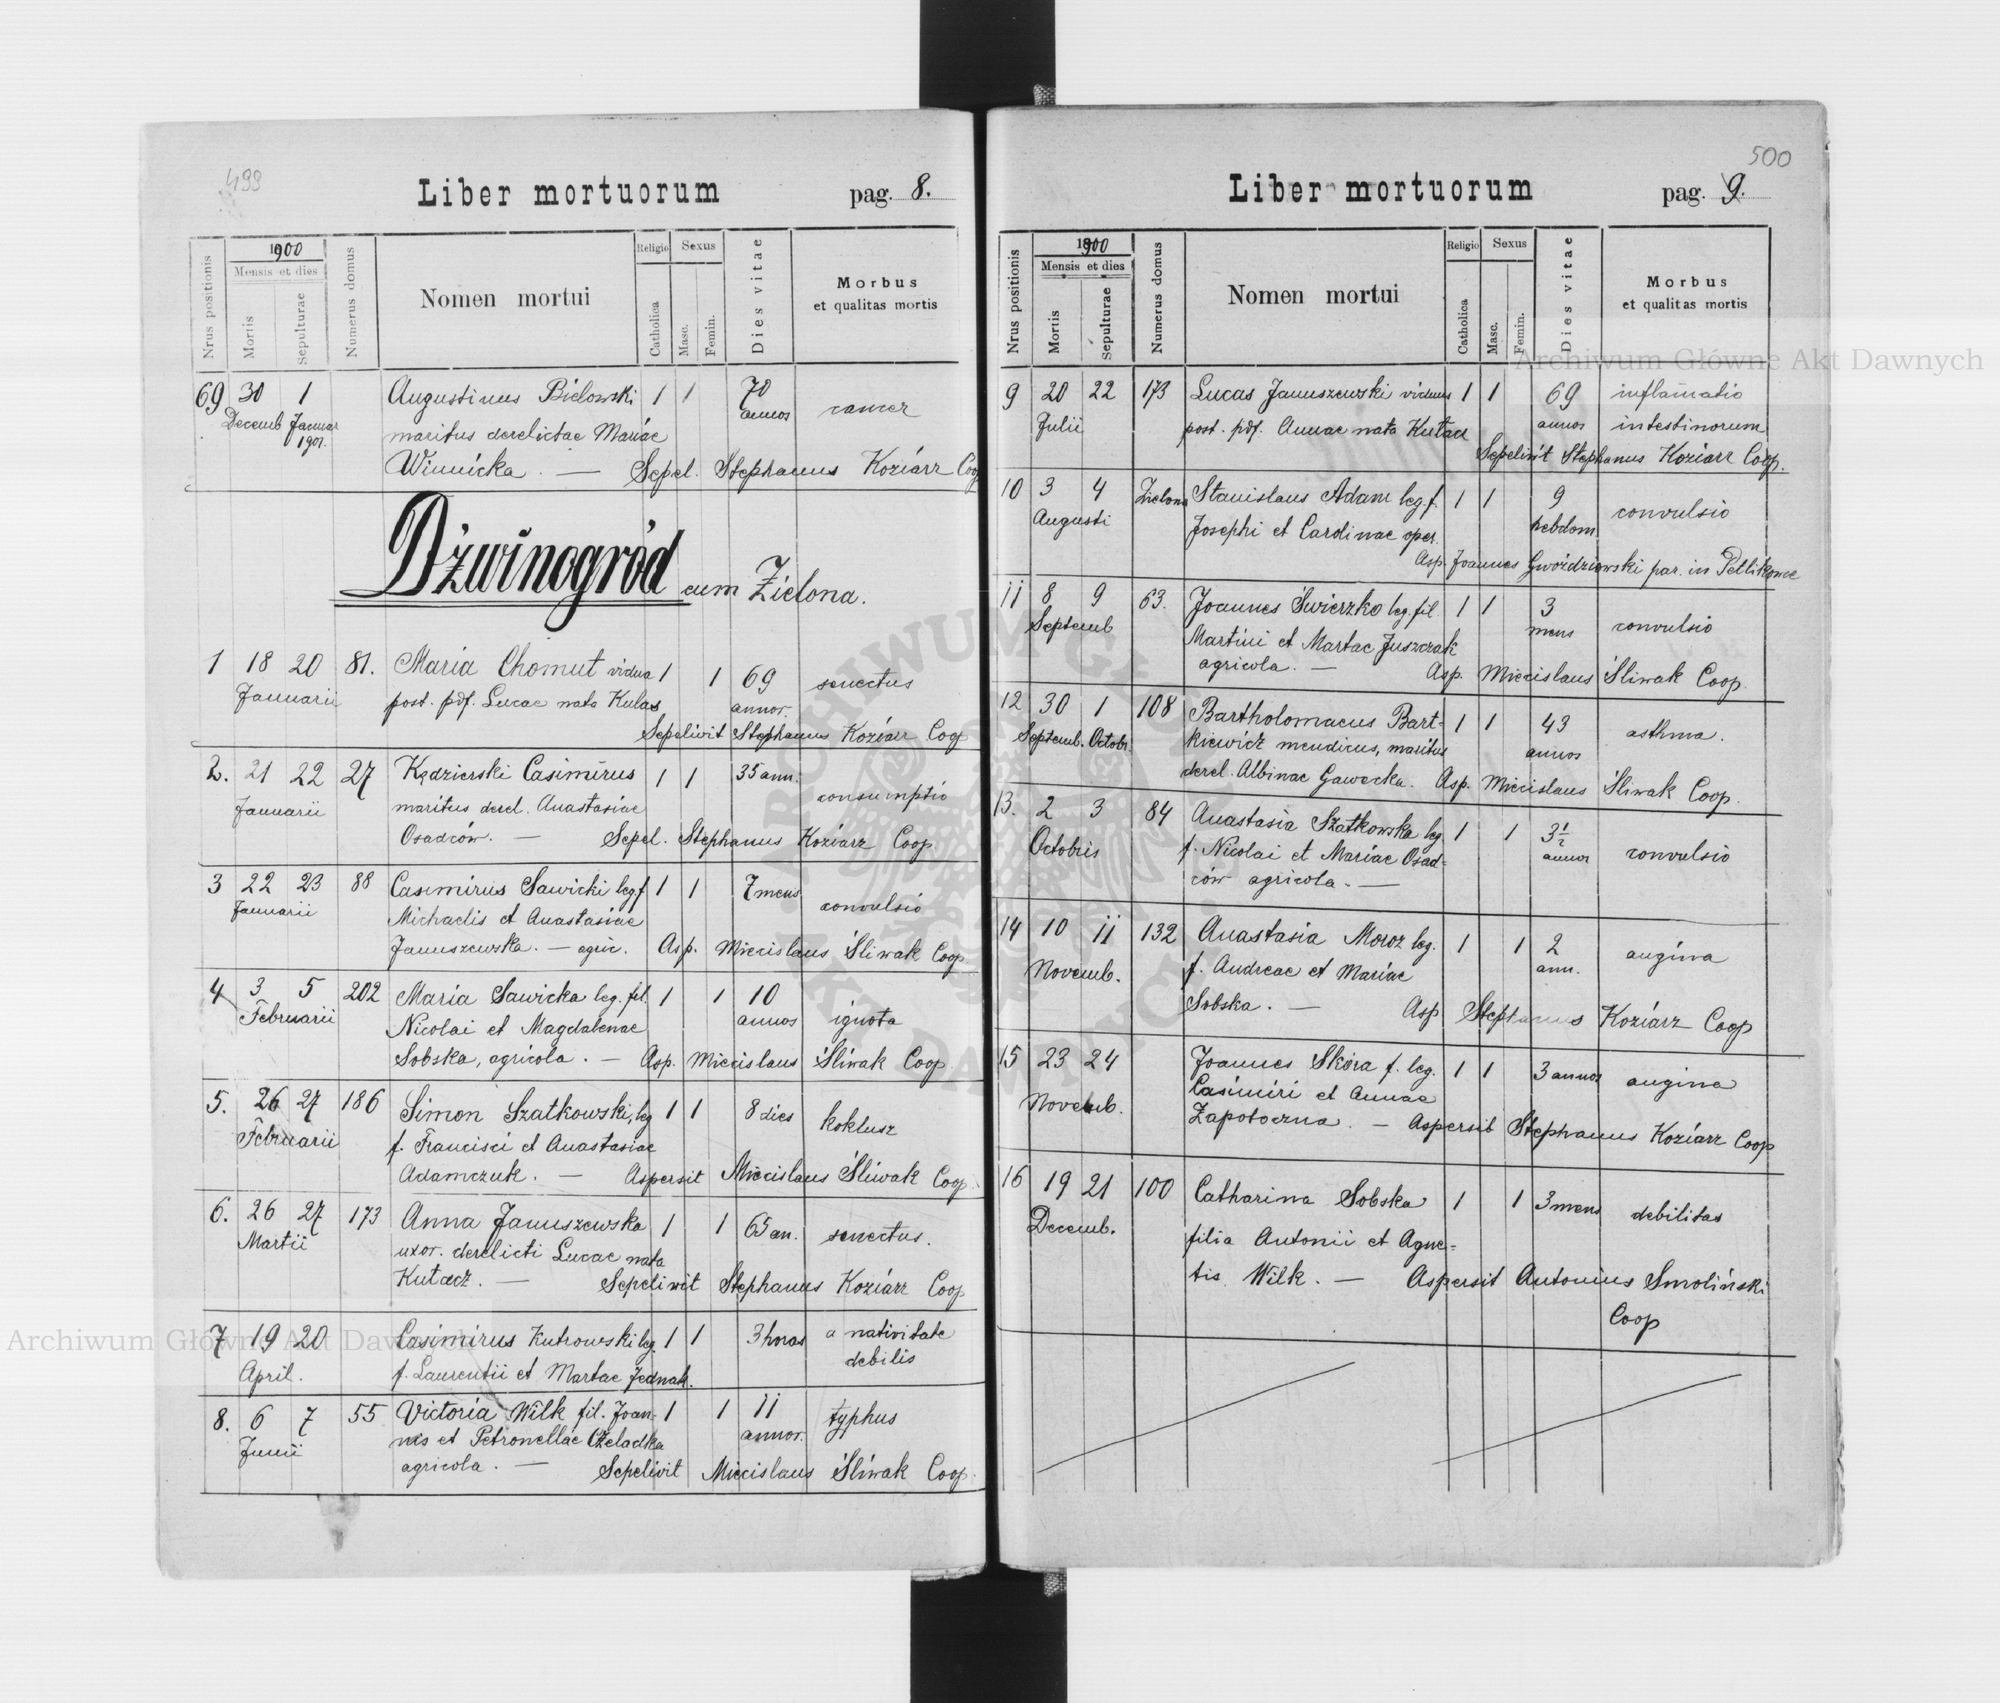 499
Liber mortuorum pag. 8.
Nrus positionis
1900
Mensis et dies
Mortis
Sepulturae
Numerus domus
Nomen mortui
Religio
Catholica
Sexus
Masc.
Femin.
Dies vitae
Morbus
et qualitas mortis
69 30 1 Augustinus Bielowski 1 1 70 cancer
Decemb Januar maritus derelictae Mariae annos
1901. Winnicka. — Sepel. Stephanus Koziarz Coop
Dźwinogród cum Zielona.
1 18 20 81. Maria Chomut vidua 1 1 69 senectus
Januarii post. pdf. Lucae nata Kulas annor.
Sepelivit Stephanus Koziarz Coop
2. 21 22 27 Kędzierski Casimirus 1 1 35 ann. consumptio
Januarii maritus derel. Anastasiae
Osadców. — Sepel. Stephanus Koziarz Coop
3 22 23 88 Casimirus Sawicki leg f 1 1 7 mens convulsio
Januarii Michaelis et Anastasiae
Januszewska. — agric. Asp. Miecislaus Śliwak Coop
4 3 5 202 Maria Sawicka leg. fil. 1 1 10 ignota
Februarii Nicolai et Magdalenae annos
Sobska, agricola. — Asp. Miecislaus Śliwak Coop
5. 26 27 186 Simon Szatkowski, leg 1 1 8 dies koklusz
Februarii f. Francisci et Anastasiae
Adamczuk. — Aspersit Miecislaus Śliwak Coop
6. 26 27 173 Anna Januszewska 1 1 65 an. senectus.
Martii uxor. derelicti Lucae nata
Kutacz. — Sepelivit Stephanus Koziarz Coop
7 19 20 Casimirus Kutrowski leg. 1 1 3 horas a nativitate
April. f. Laurentii et Martae Jednak. debilis
8. 6 7 55 Victoria Wilk fil. Joan- 1 1 11 typhus
Junii nis et Petronellae Czeladka annor.
agricola. — Sepelivit Miecislaus Śliwak Coop.
500
Liber mortuorum pag. 9.
Nrus positionis
1900
Mensis et dies
Mortis
Sepulturae
Numerus domus
Nomen mortui
Religio
Catholica
Sexus
Masc.
Femin.
Dies vitae
Morbus
et qualitas mortis
9 20 22 173 Lucas Januszewski viduus 1 1 69 inflamatio
Julii post. pdf. Annae nata Kutacz annos intestinorum
Sepelivit Stephanus Koziarz Coop.
10 3 4 Zielona Stanislaus Adam leg. f. 1 1 9 convulsio
Augusti Josephi et Carolinae oper. hebdom
Asp. Joannes Gwoździowski par. in Petlikowce
11 8 9 63. Joannes Świerzko leg. fil 1 1 3 convulsio
Septemb Martini et Martae Juszczak mens
agricola. — Asp. Miecislaus Śliwak Coop.
12 30 1 108 Bartholomaeus Bart- 1 1 43 asthma.
Septemb. Octobr. kiewicz mendicus, maritus annos
derel. Albinae Gawecka. Asp. Miecislaus Śliwak Coop.
13. 2 3 84 Anastasia Szatkowska leg 1 1 3 1/2 convulsio
Octobris f. Nicolai et Mariae Osad- annor
ców agricola. —
14 10 11 132 Anastasia Moroz leg. 1 1 2 angina
Novemb. f. Andreae et Mariae ann.
Sobska. — Asp Stephanus Koziarz Coop
15 23 24 Joannes Skóra f. leg. 1 1 3 annos angina
Novemb. Casimiri et Annae
Zapotoczna. — Aspersit Stephanus Koziarz Coop
16 19 21 100 Catharina Sobska 1 1 3 mens debilitas
Decemb. filia Antonii et Agne-
tis Wilk. — Aspersit Antonius Smoliński
Coop
Archiwum Główne Akt Dawnych
Archiwum Główne Akt Dawnych